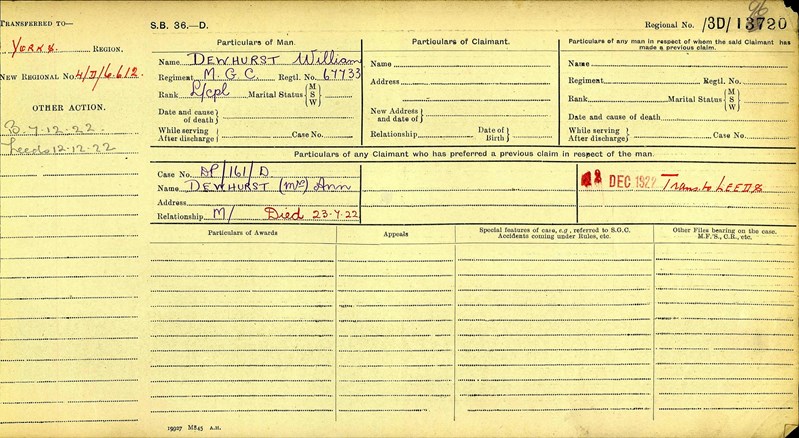 TRANSFERRED TO—
YORKS. REGION.
NEW REGIONAL No. 4/D/6612.
OTHER ACTION.
B. 7-12-22
Leeds 12-12-22
S.B. 36.—D.
96
Regional No. /3D/13720
Particulars of Man.
Name DEWHURST William
Regiment M. G. C. Regtl. No. 67733
Rank L/cpl Marital Status { M S W
Date and cause of death }
While serving
After discharge } Case No.
Particulars of Claimant.
Name
Address
New Address and date of }
Relationship Date of Birth }
Particulars of any man in respect of whom the said Claimant has made a previous claim.
Name
Regiment Regtl. No.
Rank Marital Status { M S W
Date and cause of death
While serving
After discharge } Case No.
Particulars of any Claimant who has preferred a previous claim in respect of the man.
Case No. DP/161/D
Name DEWHURST (Mrs) Ann
Address
Relationship M/ Died 23-7-22
DEC 1922 Trans. to LEEDS
Particulars of Awards
Appeals
Special features of case, e.g., referred to S.G.C. Accidents coming under Rules, etc.
Other Files bearing on the case. M.F.'S., C.R., etc.
19927 M845 A.H.